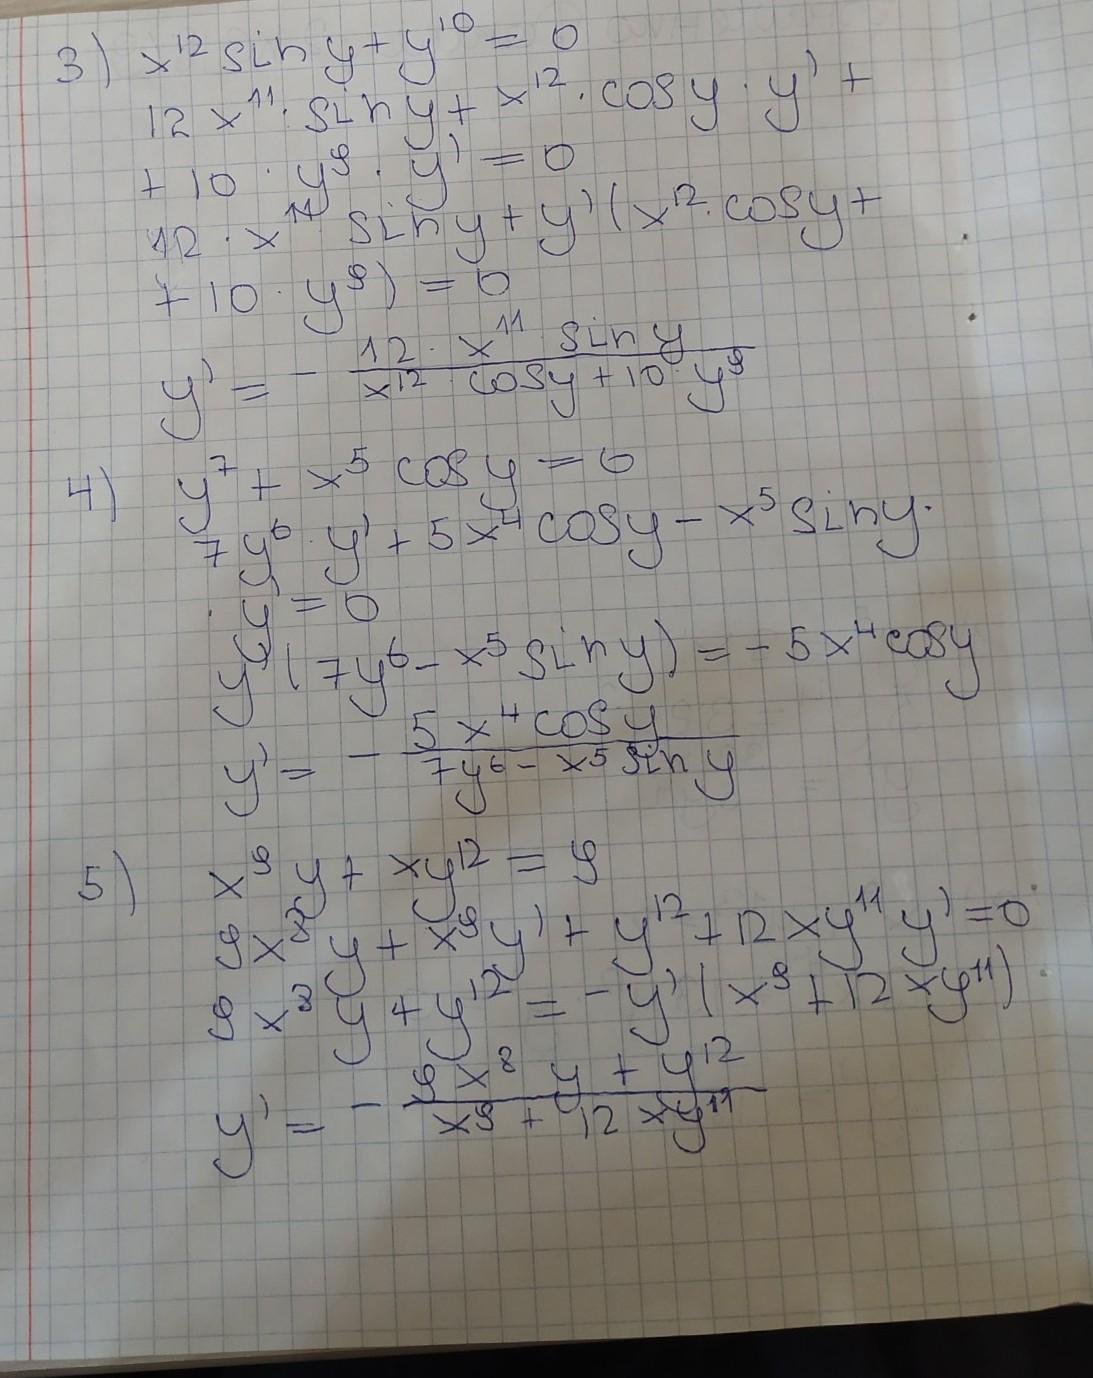 3) x¹² sin y + y¹⁰ = 0
12 x¹¹ · sin y + x¹² · cos y · y' +
+ 10 · y⁹ · y' = 0
12 · x¹¹ sin y + y' (x¹² · cos y +
+ 10 · y⁹) = 0
y' = - (12 · x¹¹ sin y) / (x¹² · cos y + 10 · y⁹)
4) y⁷ + x⁵ cos y = 6
7y⁶ · y' + 5x⁴ cos y - x⁵ sin y ·
· y' = 0
y' (7y⁶ - x⁵ sin y) = - 5x⁴ cos y
y' = - (5x⁴ cos y) / (7y⁶ - x⁵ sin y)
5) x⁹y + xy¹² = 9
9x⁸y + x⁹y' + y¹² + 12xy¹¹y' = 0
9x⁸y + y¹² = - y' (x⁹ + 12xy¹¹)
y' = - (9x⁸y + y¹²) / (x⁹ + 12xy¹¹)